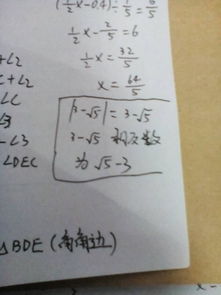 (½x-0.4)÷⅕=6/5
½x-⅖=6
½x=32/5
x=64/5
∠2
+∠2
∠C
∠3
-∠3
∠DEC
|3-√5|=3-√5
3-√5 相反数
为√5-3
△BDE (角角边)
x-